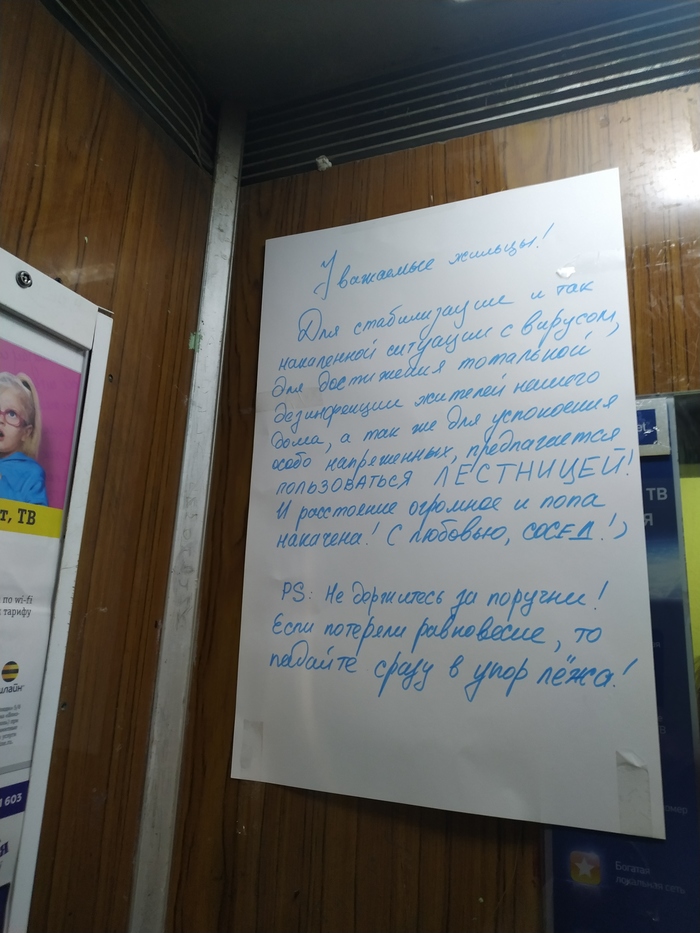 Уважаемые жильцы!
Для стабилизации и так
накаленной ситуации с вирусом,
для достижения тотальной
дезинфекции жителей нашего
дома, а так же для успокоения
особо напряженных, предлагается
пользоваться ЛЕСТНИЦЕЙ!
И расстоение огромное и попа
накачена! С любовью, СОСЕД!)
PS: Не держитесь за поручни!
Если потеряли равновесие, то
падайте сразу в упор лёжа!
т, ТВ
по wi-fi
тарифу
603
ТВ
Богатая
локальная сеть